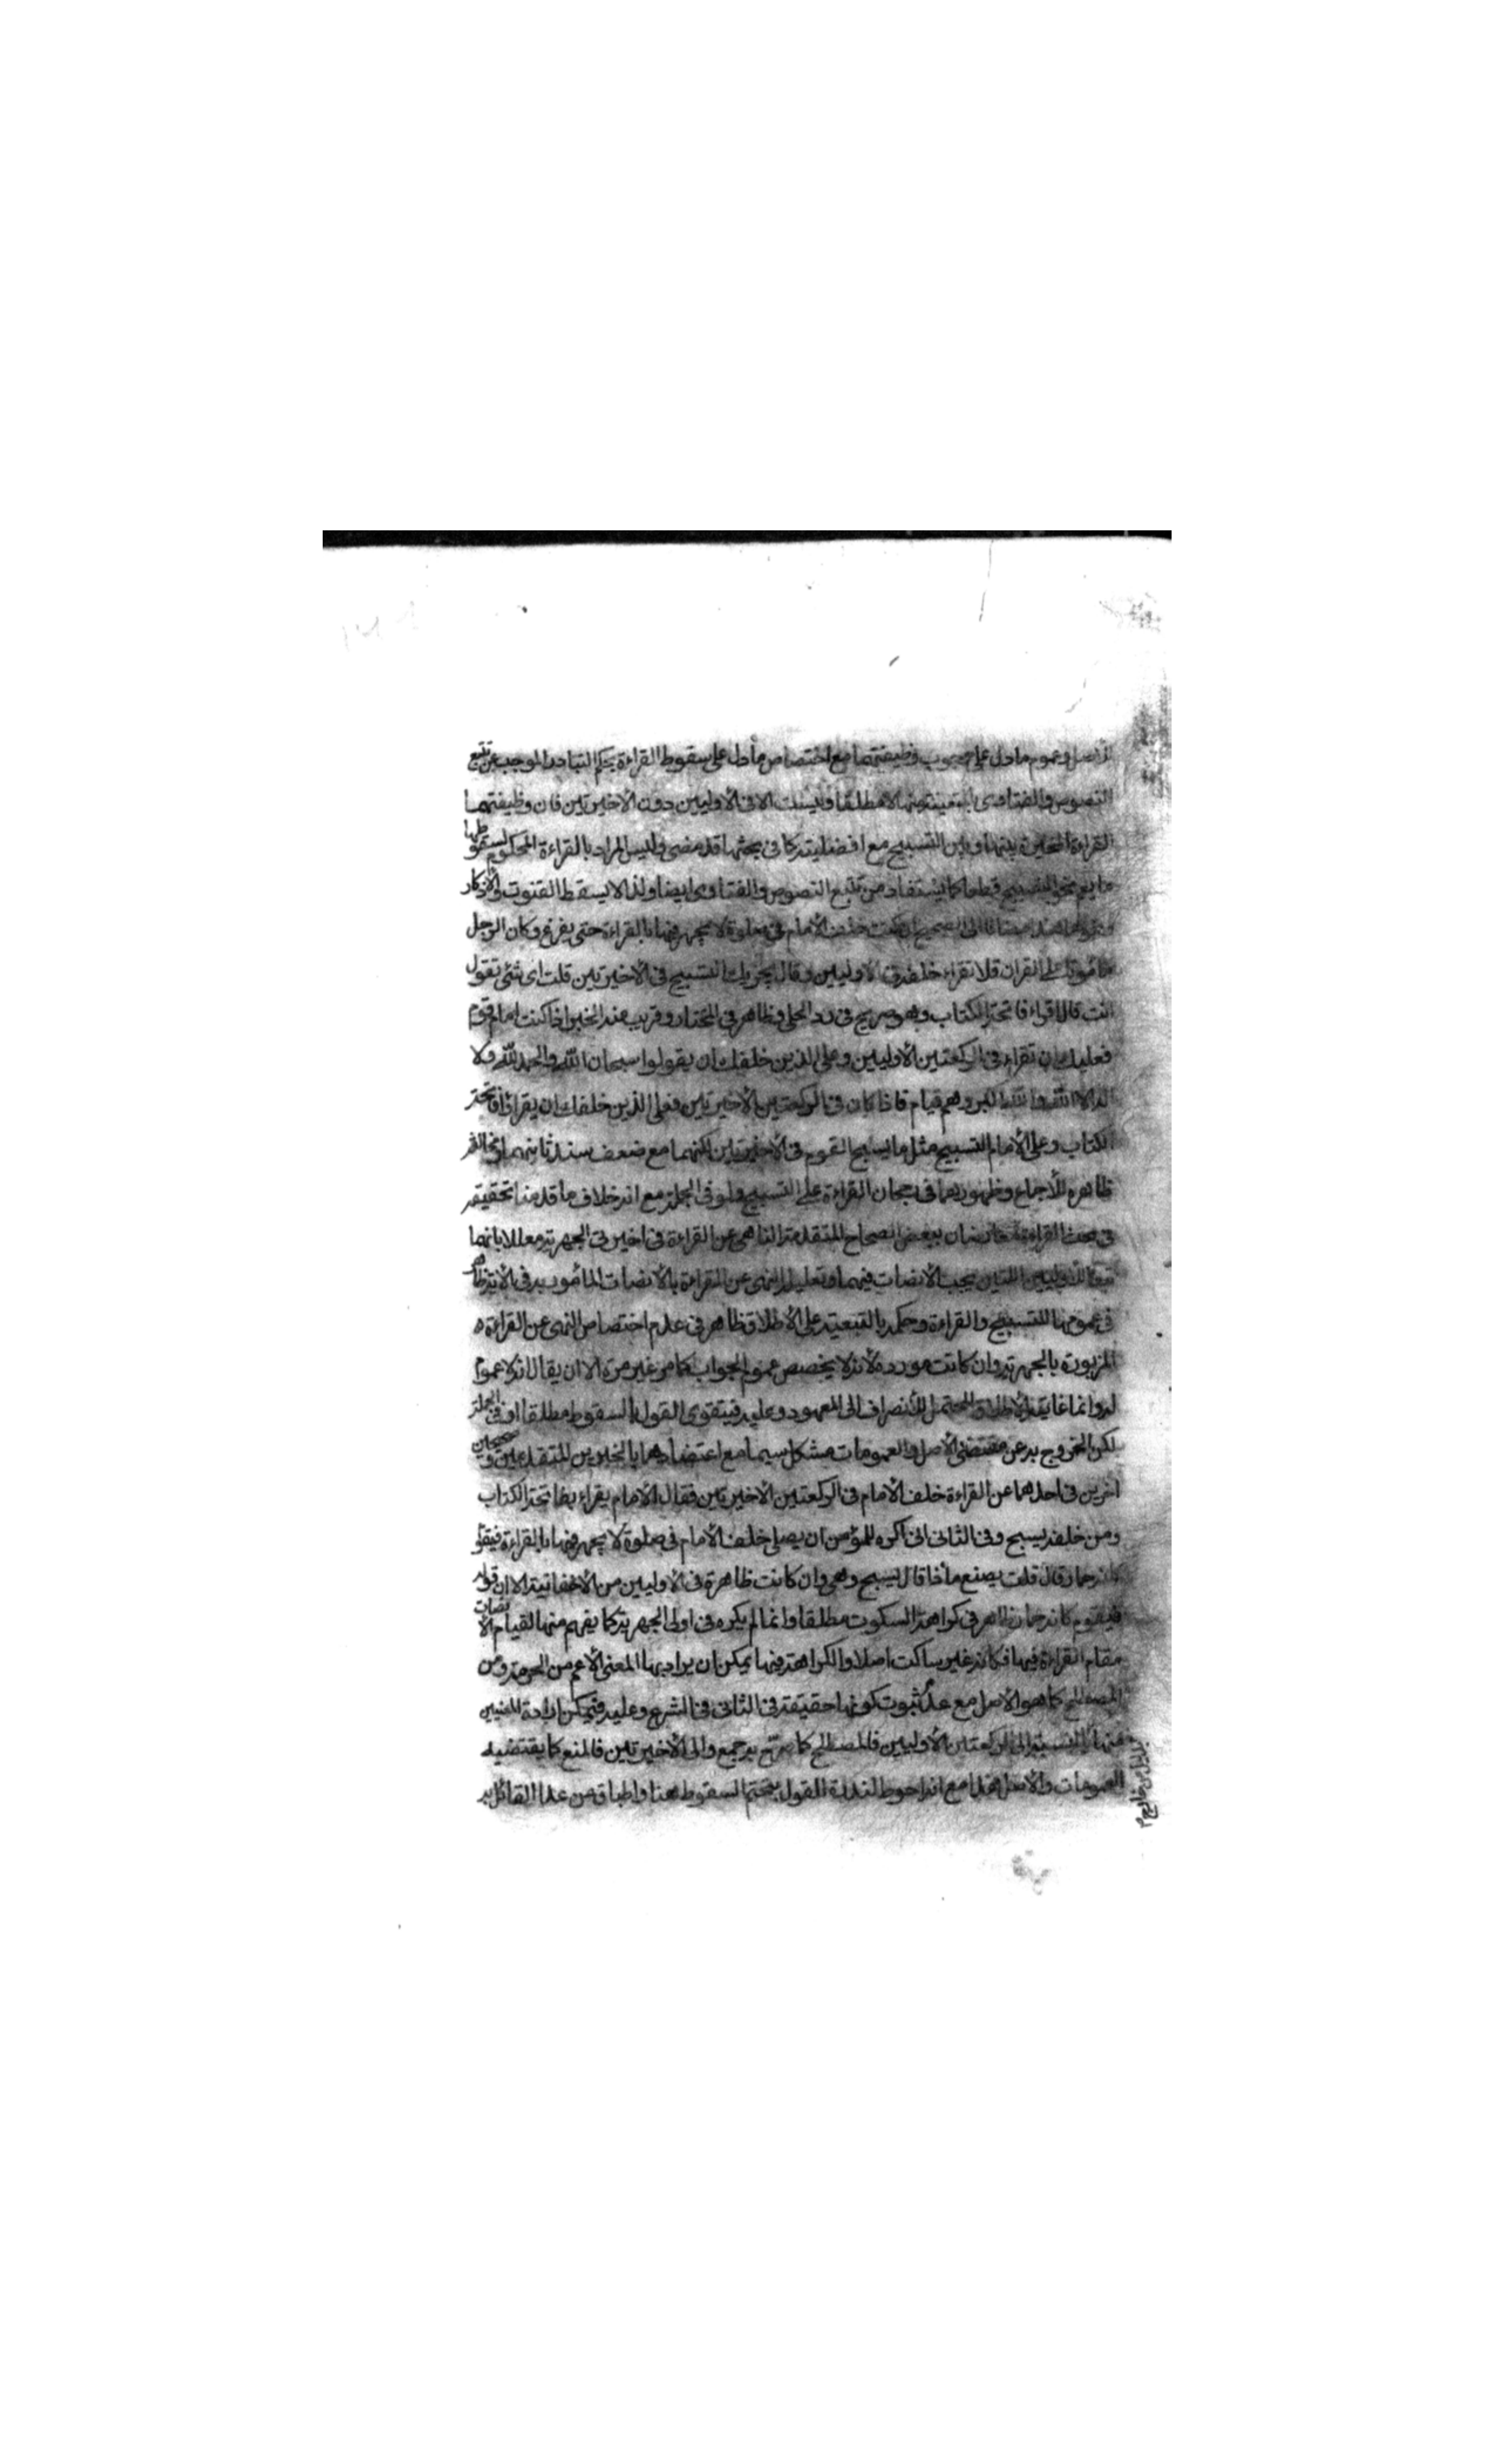 الأصل وعموم ما دل على وجوب وظيفتهما مع اختصاص ما دل على سقوط القراءة بحكم التبادر الموجب عن تتبع
النصوص والفتاوى بالمتعينة منها لا مطلقا وليست الا في الاوليين دون الاخيرتين فان وظيفتهما
القراءة المخيرة بينها وبين التسبيح مع افضليته كما في بحثها قد مضى وليس المراد بالقراءة المحكوم بسقوطها
ما يعم نحو التسبيح قطعا كما يستفاد من تتبع النصوص والفتاوى ايضا ولذا لا يسقط القنوت والاذكار
الصحيح ان كنت خلف الامام في صلوة لا يجهر فيها بالقراءة حتى يفرغ وكان الرجل
مأمونا على القران فلا تقراء خلفه في الاوليين وقال يجزيك التسبيح في الاخيرتين قلت اى شئ تقول
انت قال اقراء فاتحة الكتاب وهو صريح في رد الحلي وظاهر في المختار وقريب منه الخبر اذا كنت امام قوم
فعليك ان تقراء في الركعتين الاوليين وعلى الذين خلفك ان يقولوا سبحان الله والحمد لله ولا
اله الا الله والله اكبر وهم قيام فاذا كان في الركعتين الاخيرتين فعلى الذين خلفك ان يقراؤا فاتحة
الكتاب وعلى الامام التسبيح مثل ما يسبح القوم في الاخيرتين لكنهما مع ضعف سند ثانيهما ومخالفة
ظاهره للأجماع وظهورهما في رجحان القراءة على التسبيح ولو في الجملة مع انه خلاف ما قدمنا تحقيقه
في بحث القراءة معارضان ببعض الصحاح المتقدمة الناهي عن القراءة في اخيرتي الجهرية معللا بانهما
تبعا للأوليين اللتين يجب الانصات فيهما وتعليل النهى عن القراءة بالانصات المأمور به في الاية ظاهر
في عمومها للتسبيح والقراءة وحكمه بالتبعية على الاطلاق ظاهر في عدم اختصاص النهى عن القراءة
المزبورة بالجهرية وان كانت مورده لانه لا يخصص عموم الجواب كما مر غير مرة الا ان يقال انه لا عموم
له وانما غايته الاطلاق المحتمل للانصراف الى المعهود وعليه فيتقوى القول بالسقوط مطلقا او في الجملة
لكن الخروج به عن مقتضى الاصل والعمومات مشكل سيما مع اعتضادهما بالخبرين المتقدمين وصحيحين
اخرين في احدهما عن القراءة خلف الامام في الركعتين الاخيرتين فقال الامام يقراء بفاتحة الكتاب
ومن خلفه يسبح وفي الثاني اني اكره للمؤمن ان يصلي خلف الامام في صلوة لا يجهر فيها بالقراءة فيقوم
كانه حمار قال قلت يصنع ماذا قال يسبح وهي وان كانت ظاهرة في الاوليين من الاخفاتية الا ان قوله
فيقوم كانه حمار ظاهر في كراهة السكوت مطلقا وانما لم يكره في اولى الجهرية كما يفهم منها لقيام الانصات
مقام القراءة فيها فكانه غير ساكت اصلا والكراهة فيها يمكن ان يراد بها المعنى الاعم من الحرمة ومن
المصطلح كما هو الاصل مع عدم ثبوت كونها حقيقة في الثاني في الشرع وعليه فيمكن ارادة المعنيين
منها بالنسبة الى الركعتين الاوليين فالمصطلح كما صرح به جمع والى الاخيرتين فالمنع كما يقتضيه
العمومات والاصل هذا مع انه احوط لندرة القول بتحتم السقوط هنا واطباق من عدا القائل به